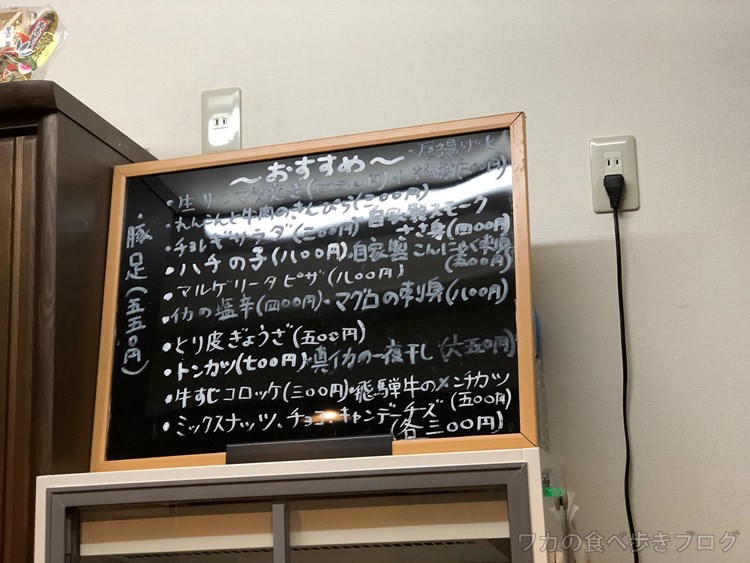 ~おすすめ~
・豚足(五五〇円)
・れんこんと牛肉のきんぴら(三〇〇円)
・チョレギサラダ(三〇〇円) 自家製スモークささ身(四〇〇円)
・ハチの子(八〇〇円)・自家製こんにゃく刺身(三〇〇円)
・マルゲリータピザ(八〇〇円)
・イカの塩辛(四〇〇円)・マグロの刺身(八〇〇円)
・とり皮ぎょうざ(五〇〇円)
・トンカツ(七〇〇円)・真イカの一夜干し(六五〇円)
・牛すじコロッケ(三〇〇円)・飛騨牛のメンチカツ(五〇〇円)
・ミックスナッツ、チョコ、キャンデーチーズ(各三〇〇円)
ワカの食べ歩きブログ